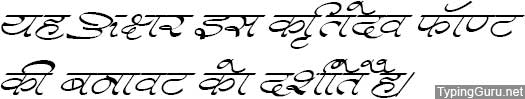 यह अक्षर इस कृतिदेव फॉण्ट
की बनावट को दर्शाते है।
TypingGuru.net